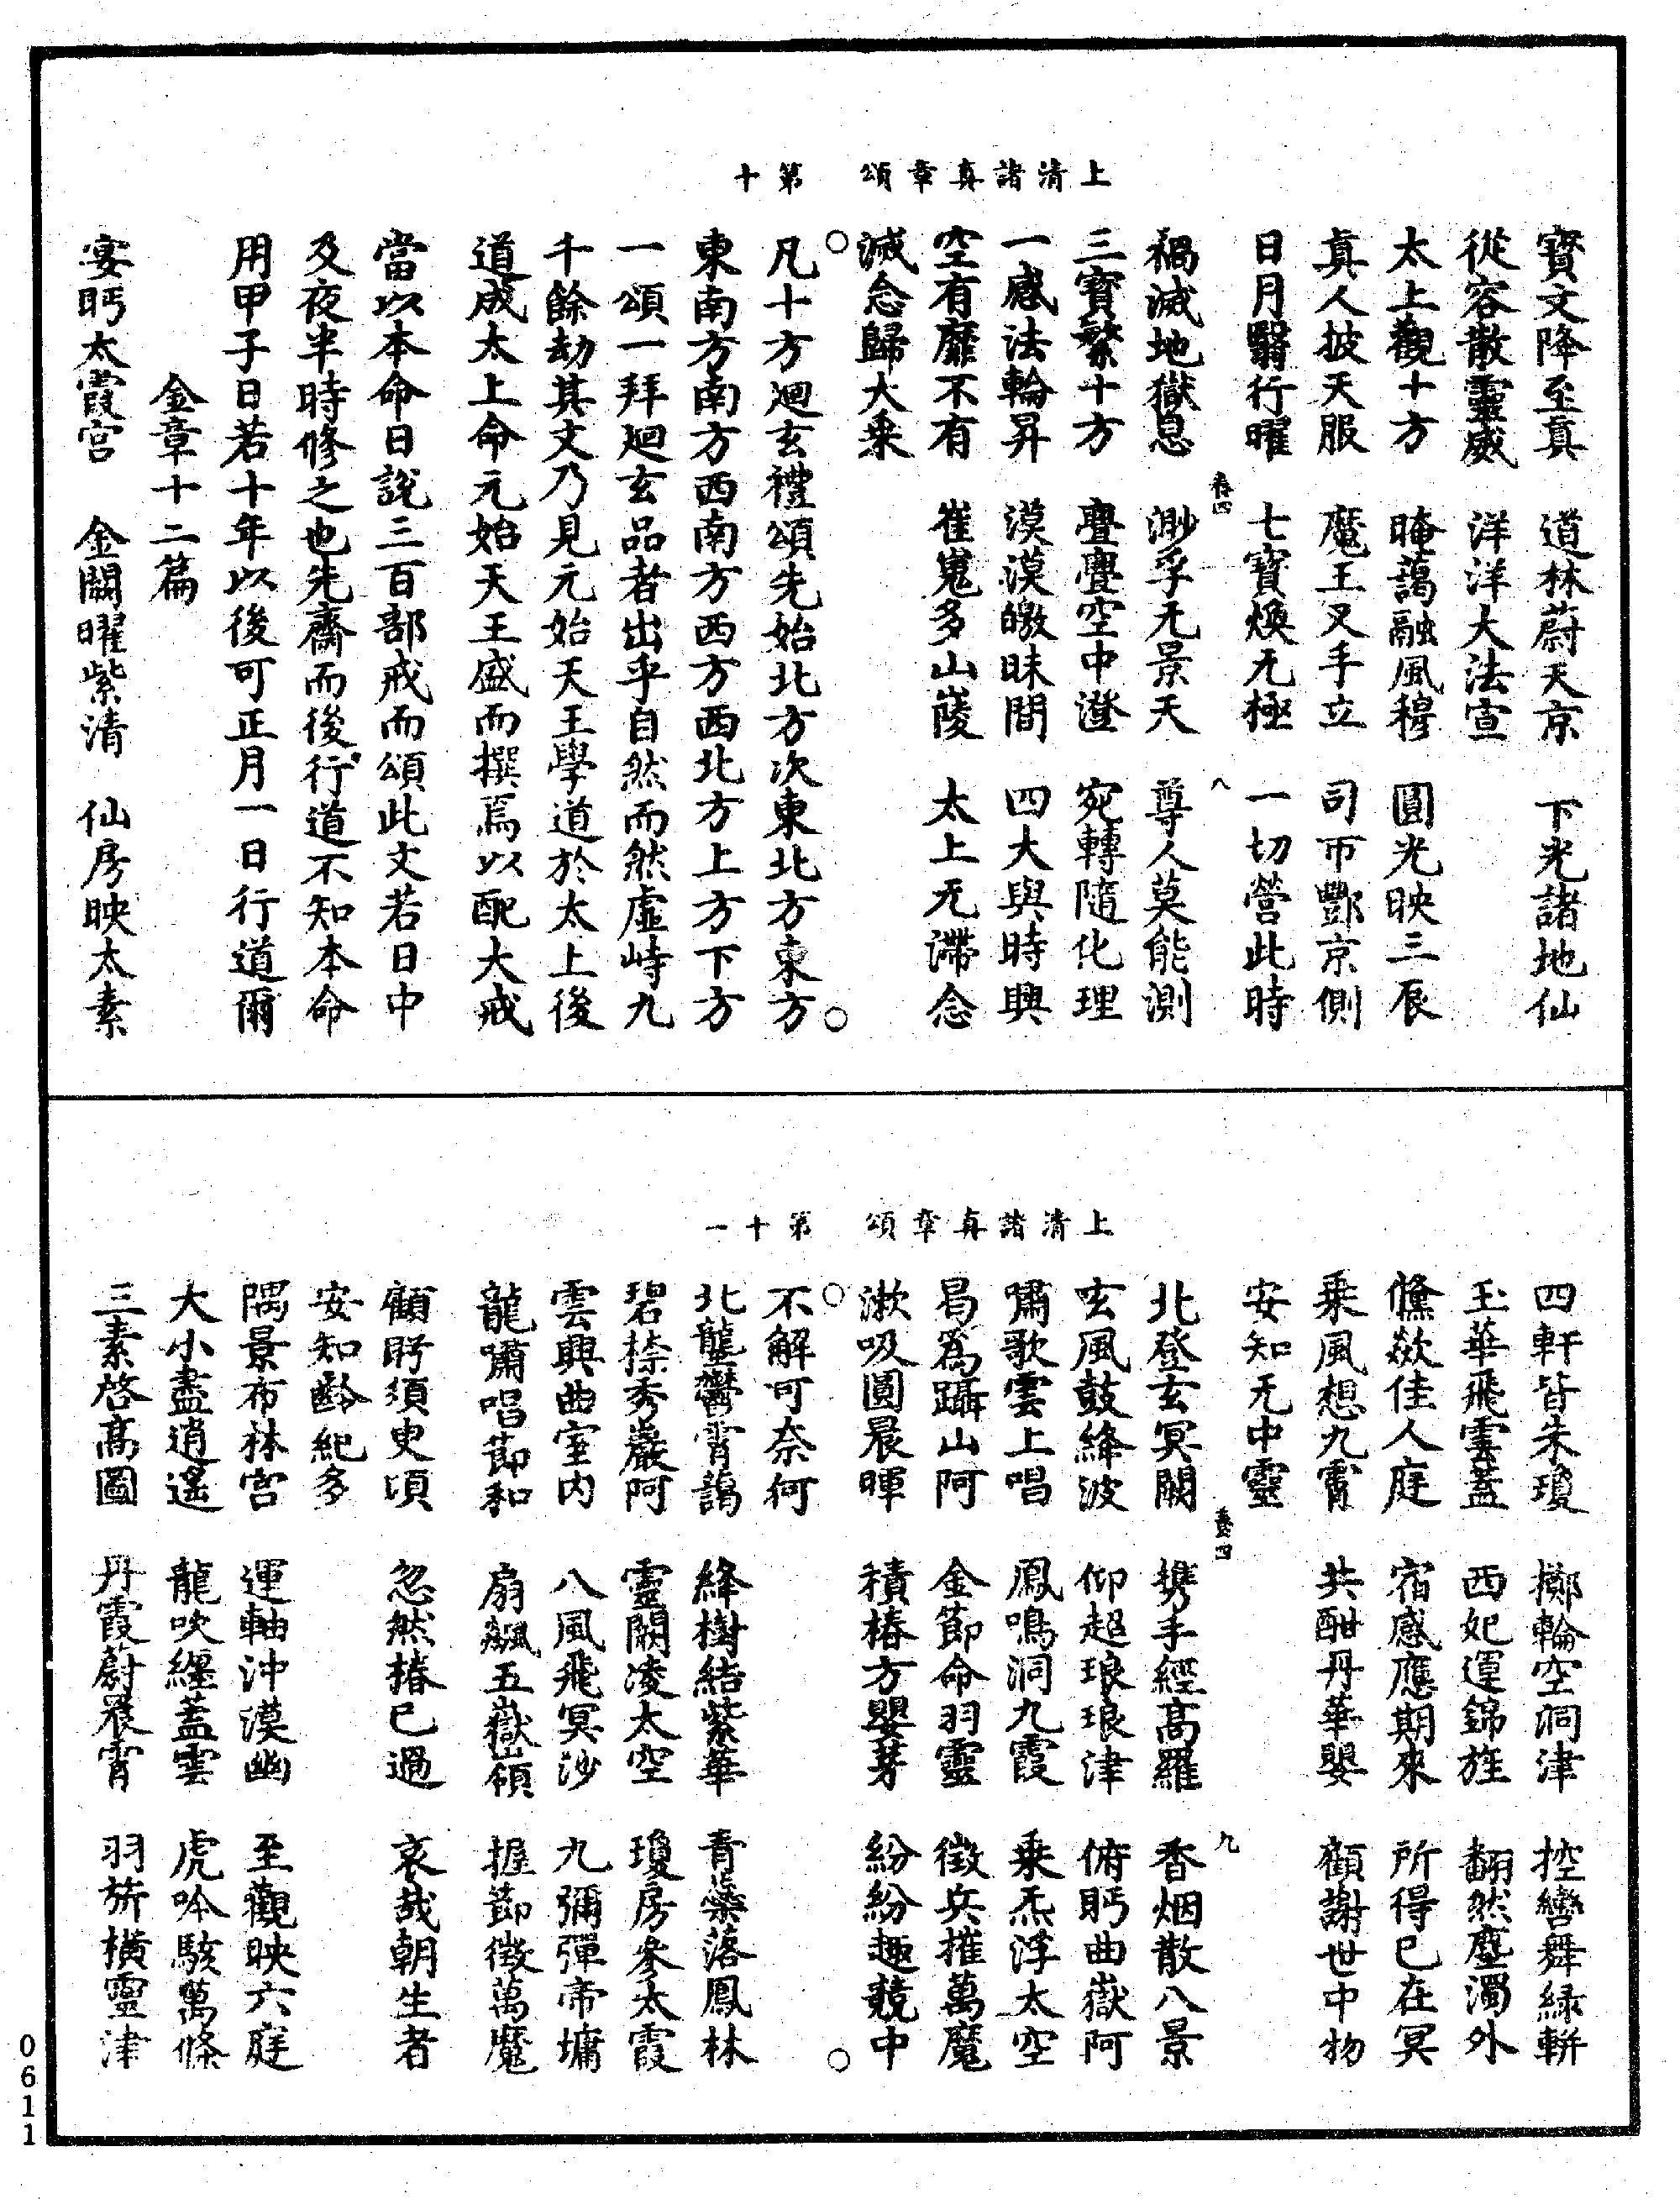 上清諸真章頌　第十
寶文降至真　道林蔚天京　下光諸地仙
從容散靈威　洋洋大法宣
太上觀十方　晻藹融風穆　圓光映三辰
真人披天服　魔王叉手立　司帀酆京側
日月翳行曜　七寶煥无極　一切營此時
卷四　八
禍滅地獄息　渺孚无景天　尊人莫能測
三寶繁十方　亹亹空中澄　宛轉隨化理
一感法輪昇　漠漠皦昧間　四大與時興
空有靡不有　崔嵬多山陵　太上无滯念
滅念歸大乘
凡十方廻玄禮頌先始北方次東北方東方
東南方南方西南方西方西北方上方下方
一頌一拜廻玄品者出乎自然而然虛峙九
千餘劫其文乃見元始天王學道於太上後
道成太上命元始天王盛而撰焉以配大戒
當以本命日說三百部戒而頌此文若日中
及夜半時修之也先齋而後行道不知本命
用甲子日若十年以後可正月一日行道爾
金章十二篇
宴眄太霞宮　金闕曜紫清　仙房映太素
上清諸真章頌　第十一
四軒皆朱瓊　擲輪空洞津　控轡舞綠軿
玉華飛雲蓋　西妃運錦旌　翻然塵濁外
儵欻佳人庭　宿感應期來　所得已在冥
乘風想九霄　共酣丹華嬰　顧謝世中物
安知无中靈
卷四　九
北登玄冥闕　攜手經高羅　香烟散八景
玄風鼓絳波　仰超琅琅津　俯眄曲嶽阿
嘯歌雲上唱　鳳鳴洞九霞　乘炁浮太空
曷為躡山阿　金節命羽靈　徵兵摧萬魔
漱吸圓晨暉　積椿方嬰芽　紛紛趣競中
不解可奈何
北壟鬱霄藹　絳樹結紫華　青蘂落鳳林
碧柰秀巖阿　靈闕凌太空　瓊房參太霞
雲興曲室內　八風飛冥沙　九彌彈帝墉
龍嘯唱節和　扇飆五嶽嶺　握節徵萬魔
顧眄須臾頃　忽然椿已過　哀哉朝生者
安知齡紀多
隅景布林宮　運軸沖漠幽　至觀映六庭
大小盡逍遙　龍吹纏蓋雲　虎吟駭萬條
三素啓高圖　丹霞蔚晨霄　羽旂橫靈津
0611